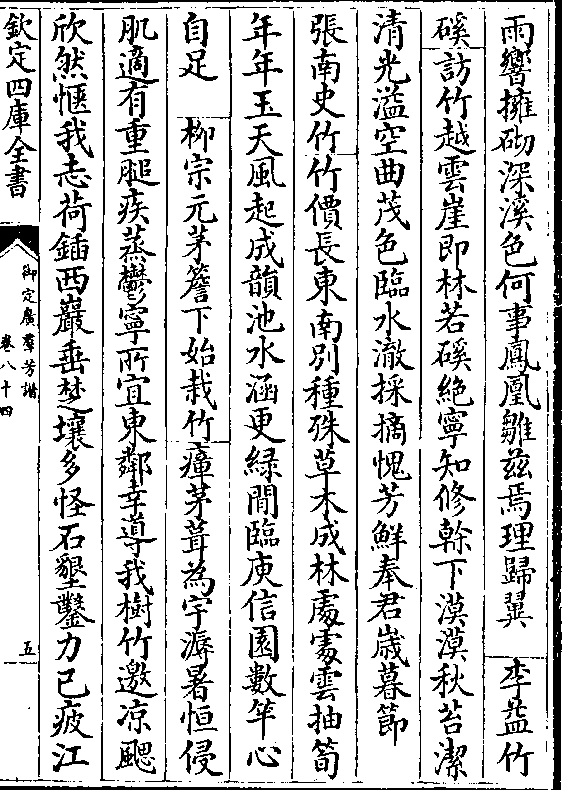 雨響擁砌深溪色何事鳳凰雛兹焉理歸翼　李益竹
磎訪竹越雲崖即林若磎絶寧知修榦下漠漠秋苔潔
清光溢空曲茂色臨水澈採摘愧芳鮮奉君歳暮節
張南史竹竹價長東南別種殊草木成林處處雲抽筍
年年玉天風起成韻池水涵更緑閒臨庾信園數竿心
自足　柳宗元茅簷下始栽竹瘴茅葺為宇溽暑恒侵
肌適有重膇疾蒸鬱寧所宜東鄰幸導我樹竹邀凉颸
欣然愜我志荷鍤西巖垂楚壤多怪石墾鑿力已疲江
欽定四庫全書
御定廣羣芳譜
卷八十四
五